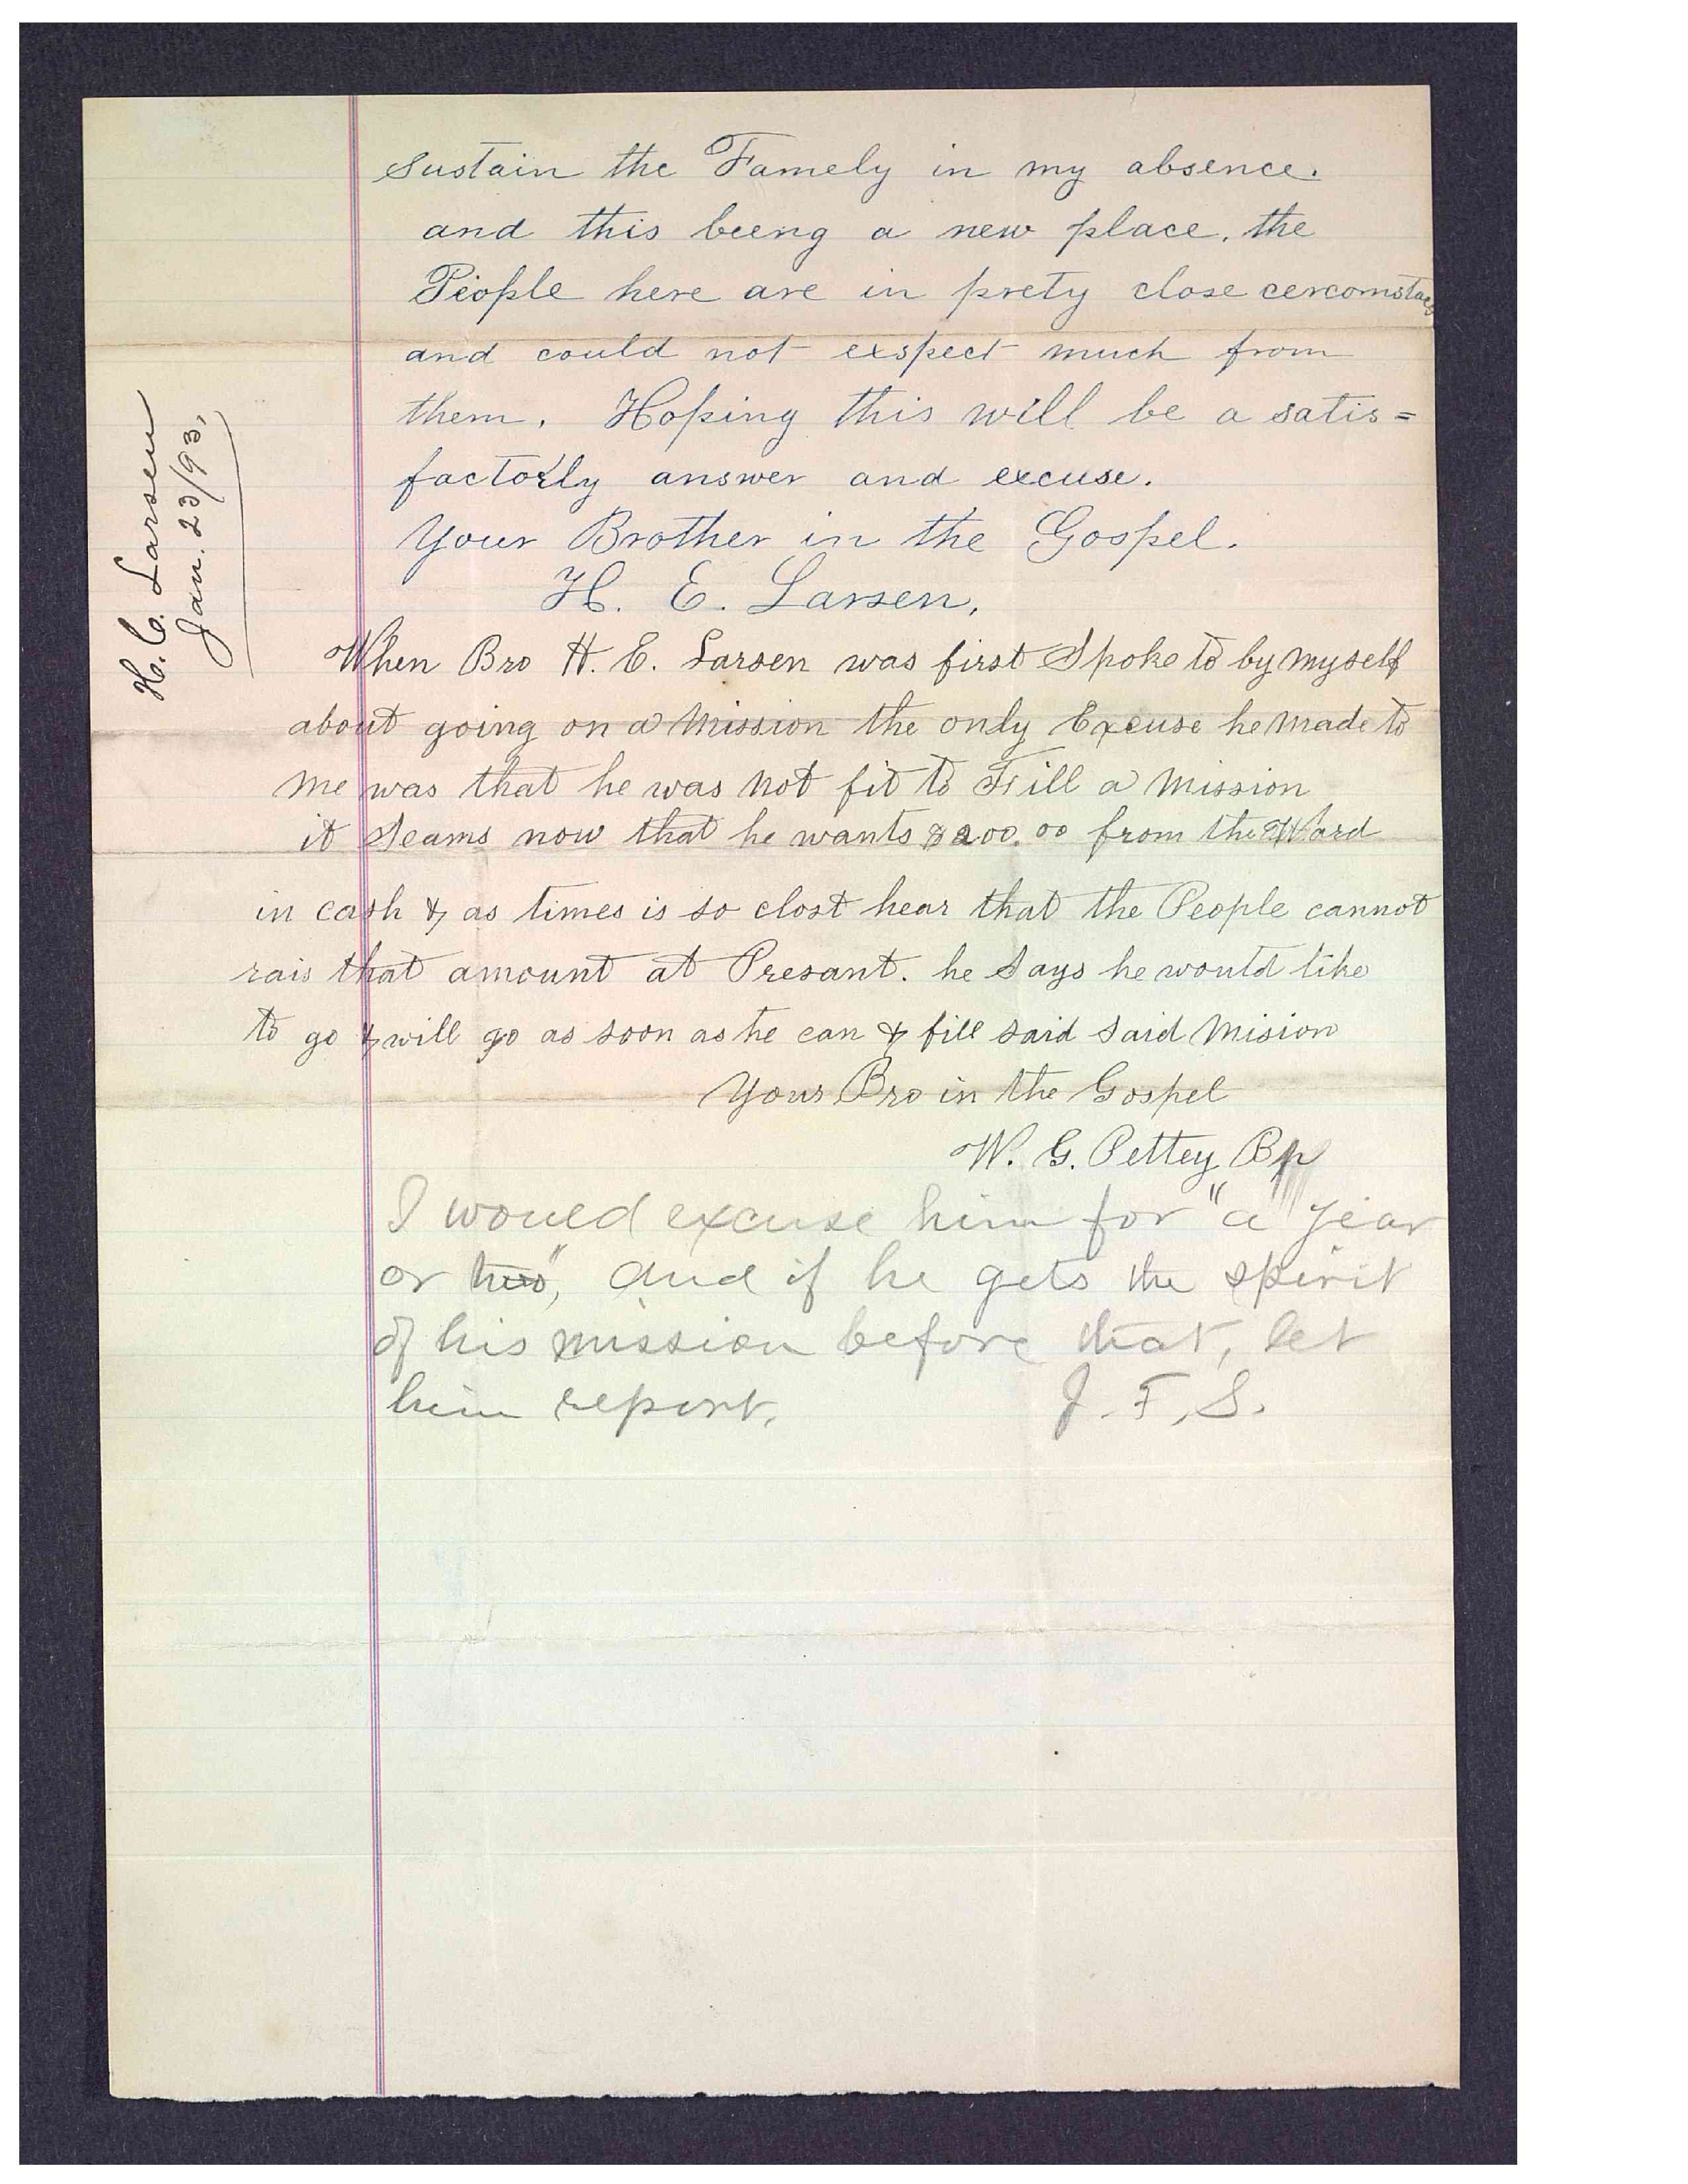 sustain the Famely in my absence.
and this beeng a new place, the
Pieople here are in prety close cercomstaes
and could not exspect much from
them. Hoping this will be a satis=
factorly answer and excuse.
Your Brother in the Gospel.
H. E. Larsen,
H. C. Larsen
Jan. 23/93,
When Bro H. E. Larsen was first Spoke to by myself
about going on a Mission the only Excuse he made to
me was that he was Not fit to Fill a Mission
it Seams now that he wants $200.00 from the Ward
in cash & as times is so clost hear that the People cannot
rais that amount at Presant. he Says he would like
to go & will go as soon as he can & fill said said Mision
Your Bro in the Gospel
W. G. Pettey Bp
I would excuse him for "a year
or two", and if he gets the spirit
of his mission before that, let
him report. J. F. S.